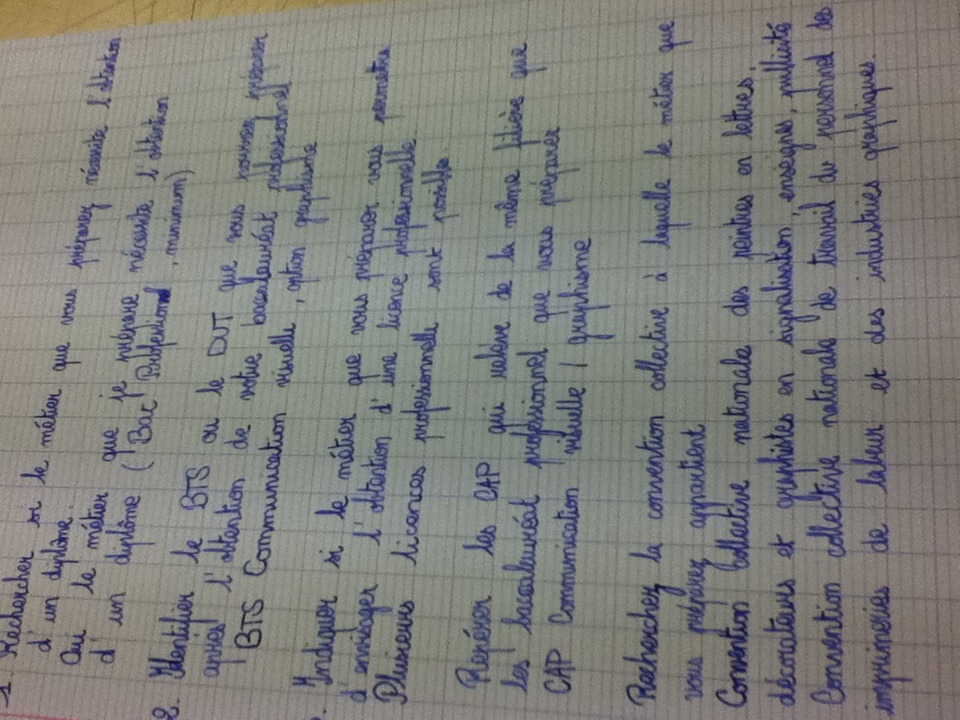 1 Rechercher si le métier que vous préparez nécessite l'obtention
d'un diplôme.
Oui le métier que je prépare nécessite l'obtention
d'un diplôme (Bac Professionnel, minimum)
2. Identifier le BTS ou le DUT que vous pourriez préparer
après l'obtention de votre baccalauréat professionnel
BTS Communication visuelle, option graphisme
Indiquer si le métier que vous préparer vous permettra
d'envisager l'obtention d'une licence professionnelle
Plusieurs licences professionnelle sont possible.
Repérer les CAP qui relève de la même filière que
les baccalauréat professionnel que vous préparer
CAP Communication visuelle / graphisme
Recherchez la convention collective à laquelle le métier que
vous préparez appartient
Convention Collective nationale des peintres en lettres,
décorateurs et graphistes en signalisation, enseignes, publicité
Convention collective nationale de travail du personnel des
imprimeries de labeur et des industries graphiques.